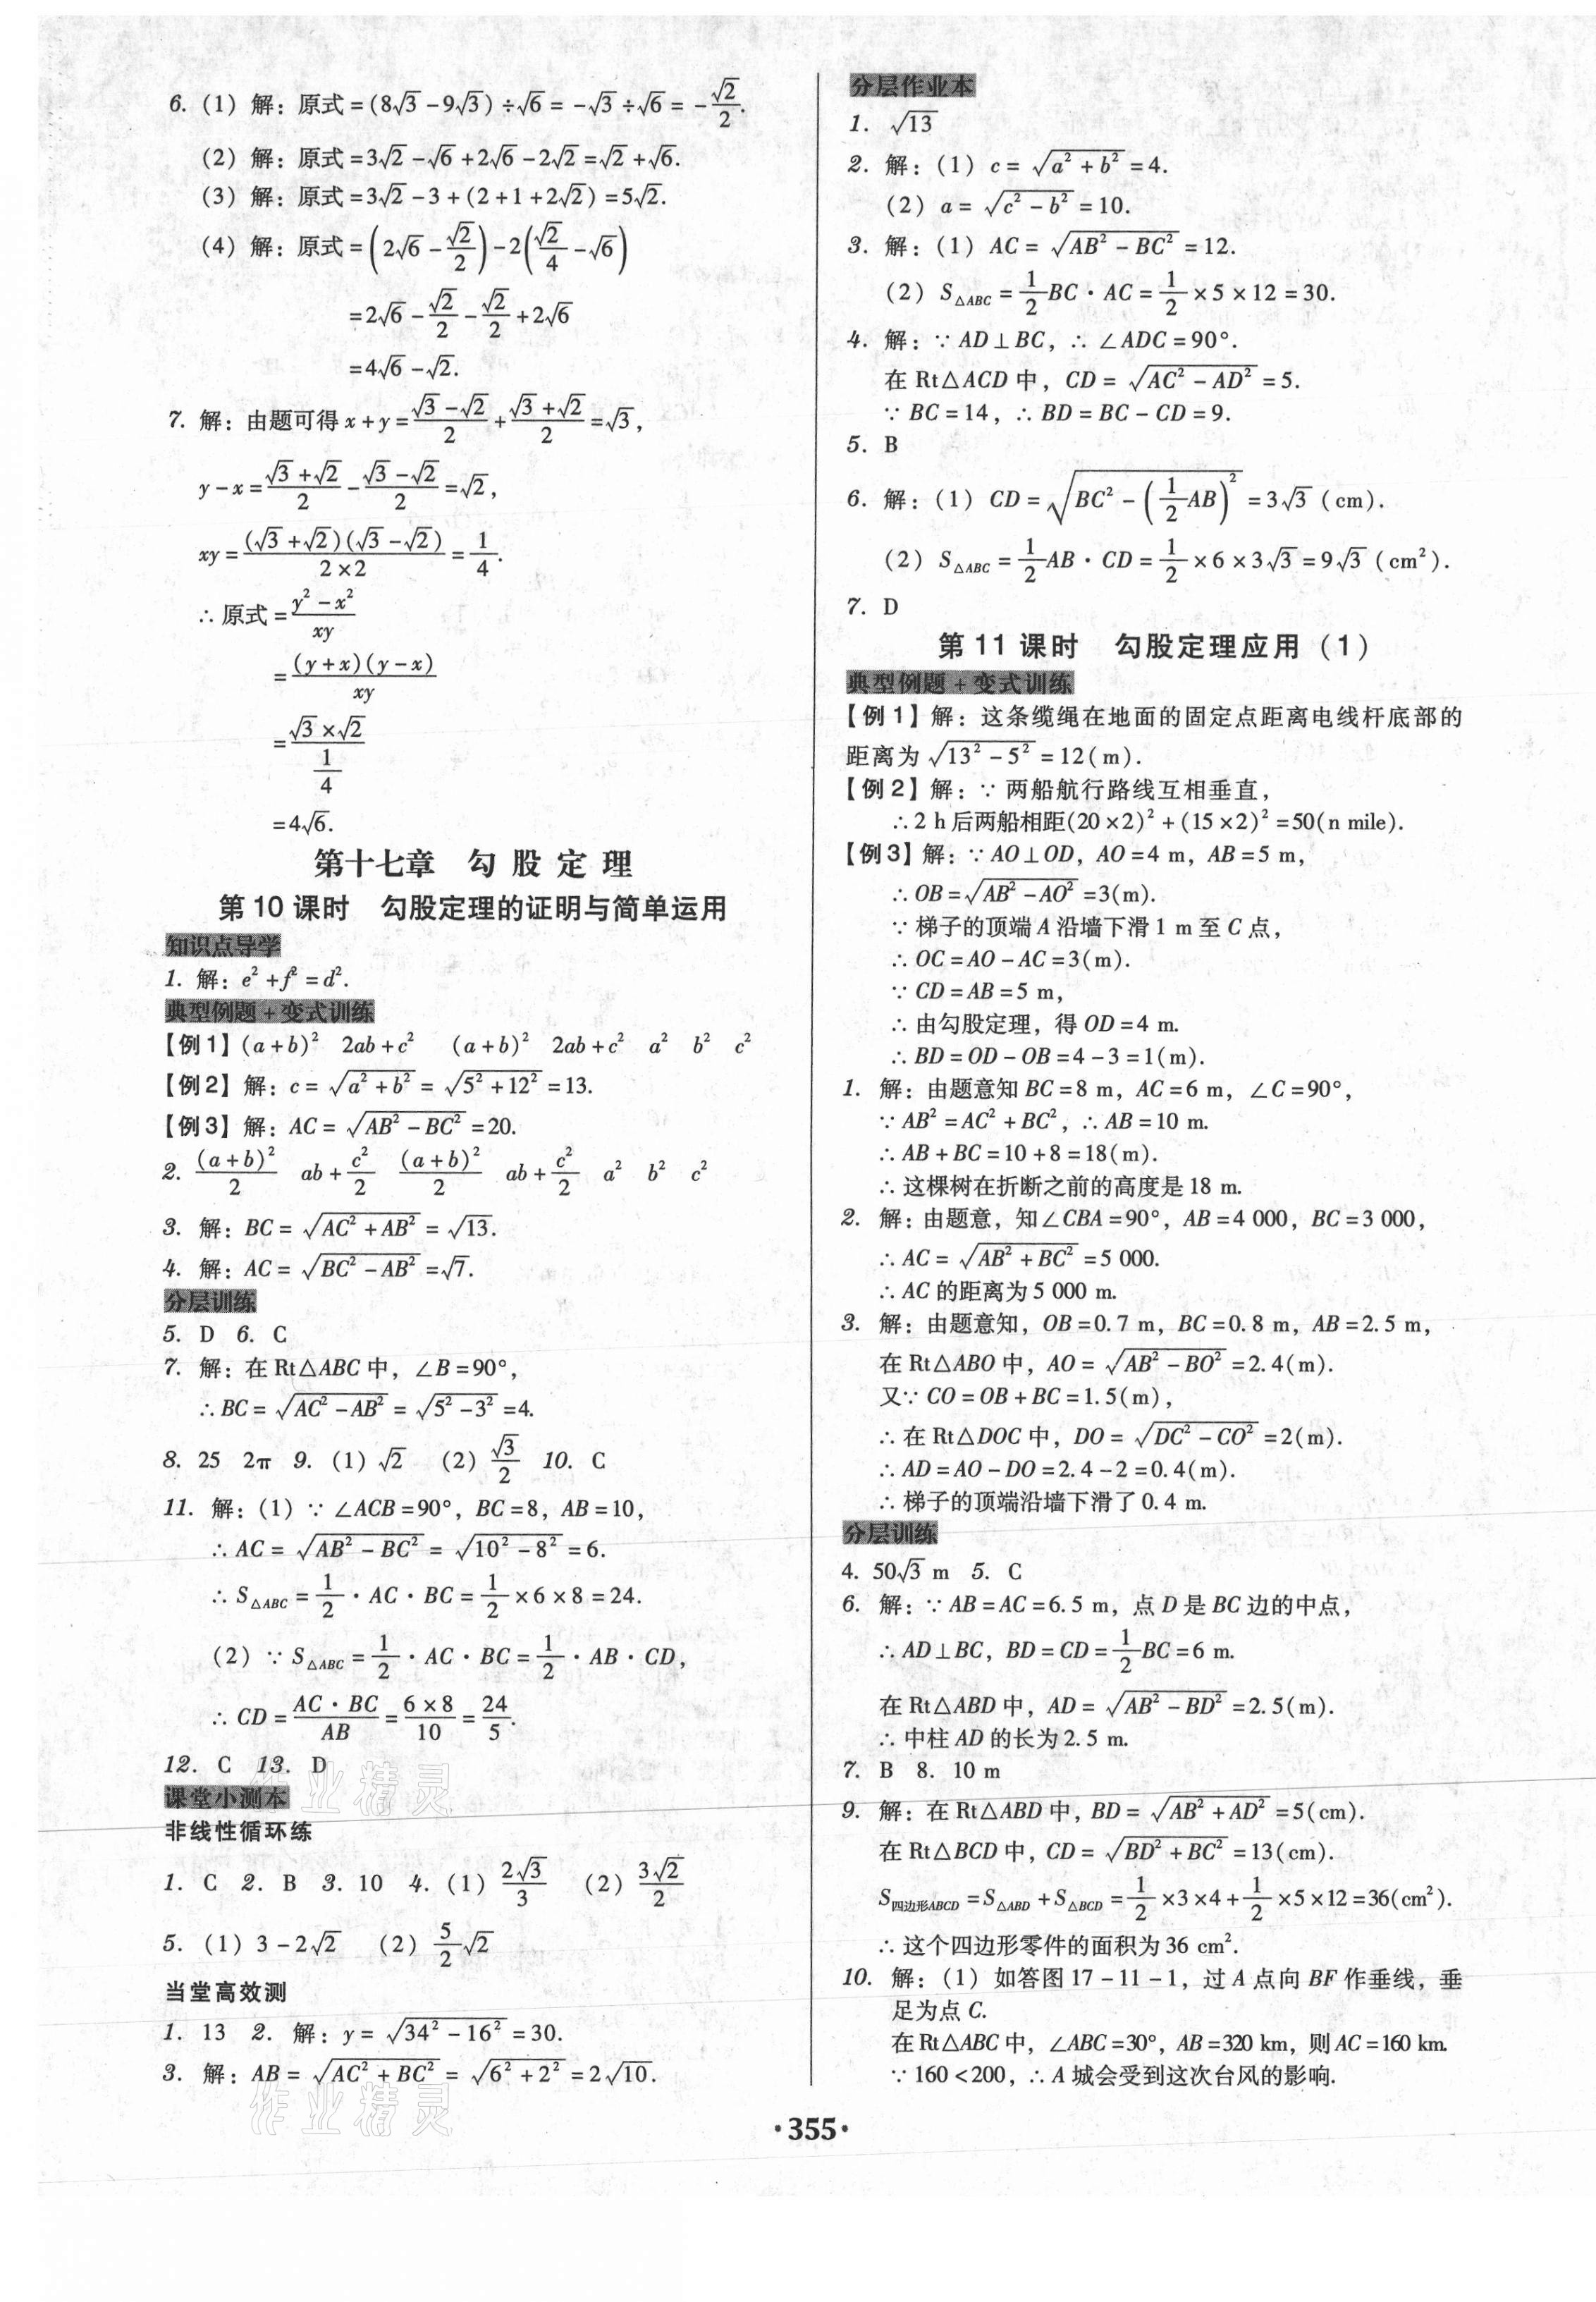 6. (1) 解: 原式=(8√3-9√3)÷√6=-√3÷√6=-√2/2.
(2) 解: 原式=3√2-√6+2√6-2√2=√2+√6.
(3) 解: 原式=3√2-3+(2+1+2√2)=5√2.
(4) 解: 原式=(2√6-√2/2)-2(√2/4-√6)
=2√6-√2/2-√2/2+2√6
=4√6-√2.
7. 解: 由题可得 x+y=(√3-√2)/2+(√3+√2)/2=√3,
y-x=(√3+√2)/2-(√3-√2)/2=√2,
xy=(√3+√2)(√3-√2)/(2×2)=1/4.
∴原式=(y²-x²)/xy
=(y+x)(y-x)/xy
=(√3×√2)/(1/4)
=4√6.
第十七章 勾股定理
第10课时 勾股定理的证明与简单运用
知识点导学
1. 解: e²+f²=d².
典型例题+变式训练
【例1】(a+b)² 2ab+c² (a+b)² 2ab+c² a² b² c²
【例2】解: c=√(a²+b²)=√(5²+12²)=13.
【例3】解: AC=√(AB²-BC²)=20.
2. (a+b)²/2 ab+c²/2 (a+b)²/2 ab+c²/2 a² b² c²
3. 解: BC=√(AC²+AB²)=√13.
4. 解: AC=√(BC²-AB²)=√7.
分层训练
5. D 6. C
7. 解: 在Rt△ABC中, ∠B=90°,
∴BC=√(AC²-AB²)=√(5²-3²)=4.
8. 25 2π 9. (1) √2 (2) √3/2 10. C
11. 解: (1) ∵∠ACB=90°, BC=8, AB=10,
∴AC=√(AB²-BC²)=√(10²-8²)=6.
∴S△ABC=1/2·AC·BC=1/2×6×8=24.
(2) ∵S△ABC=1/2·AC·BC=1/2·AB·CD,
∴CD=AC·BC/AB=6×8/10=24/5.
12. C 13. D
课堂小测本
非线性循环练
1. C 2. B 3. 10 4. (1) 2√3/3 (2) 3√2/2
5. (1) 3-2√2 (2) 5/2√2
当堂高效测
1. 13 2. 解: y=√(34²-16²)=30.
3. 解: AB=√(AC²+BC²)=√(6²+2²)=2√10.
作业精灵
作业精灵
分层作业本
1. √13
2. 解: (1) c=√(a²+b²)=4.
(2) a=√(c²-b²)=10.
3. 解: (1) AC=√(AB²-BC²)=12.
(2) S△ABC=1/2BC·AC=1/2×5×12=30.
4. 解: ∵AD⊥BC, ∴∠ADC=90°.
在Rt△ACD中, CD=√(AC²-AD²)=5.
∵BC=14, ∴BD=BC-CD=9.
5. B
6. 解: (1) CD=√(BC²-(1/2AB)²)=3√3 (cm).
(2) S△ABC=1/2AB·CD=1/2×6×3√3=9√3 (cm²).
7. D
第11课时 勾股定理应用(1)
典型例题+变式训练
【例1】解: 这条缆绳在地面的固定点距离电线杆底部的
距离为√(13²-5²)=12(m).
【例2】解: ∵两船航行路线互相垂直,
∴2 h后两船相距(20×2)²+(15×2)²=50(n mile).
【例3】解: ∵AO⊥OD, AO=4 m, AB=5 m,
∴OB=√(AB²-AO²)=3(m).
∵梯子的顶端A沿墙下滑1 m至C点,
∴OC=AO-AC=3(m).
∵CD=AB=5 m,
∴由勾股定理, 得OD=4 m.
∴BD=OD-OB=4-3=1(m).
1. 解: 由题意知BC=8 m, AC=6 m, ∠C=90°,
∵AB²=AC²+BC², ∴AB=10 m.
∴AB+BC=10+8=18(m).
∴这棵树在折断之前的高度是18 m.
2. 解: 由题意, 知∠CBA=90°, AB=4 000, BC=3 000,
∴AC=√(AB²+BC²)=5 000.
∴AC的距离为5 000 m.
3. 解: 由题意知, OB=0.7 m, BC=0.8 m, AB=2.5 m,
在Rt△ABO中, AO=√(AB²-BO²)=2.4(m).
又∵CO=OB+BC=1.5(m),
∴在Rt△DOC中, DO=√(DC²-CO²)=2(m).
∴AD=AO-DO=2.4-2=0.4(m).
∴梯子的顶端沿墙下滑了0.4 m.
分层训练
4. 50√3 m 5. C
6. 解: ∵AB=AC=6.5 m, 点D是BC边的中点,
∴AD⊥BC, BD=CD=1/2BC=6 m.
在Rt△ABD中, AD=√(AB²-BD²)=2.5(m).
∴中柱AD的长为2.5 m.
7. B 8. 10 m
9. 解: 在Rt△ABD中, BD=√(AB²+AD²)=5(cm).
在Rt△BCD中, CD=√(BD²+BC²)=13(cm).
S四边形ABCD=S△ABD+S△BCD=1/2×3×4+1/2×5×12=36(cm²).
∴这个四边形零件的面积为36 cm².
10. 解: (1) 如答图17-11-1, 过A点向BF作垂线, 垂
足为点C.
在Rt△ABC中, ∠ABC=30°, AB=320 km, 则AC=160 km.
∵160<200, ∴A城会受到这次台风的影响.
·355·